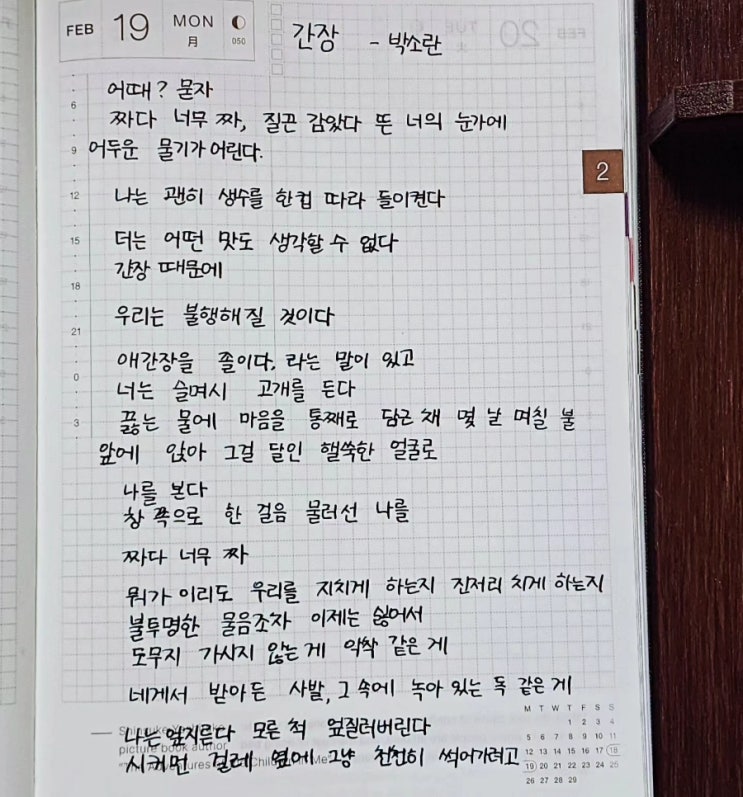 FEB 19 MON
月
050
간장 - 박소란
어때? 묻자
짜다 너무 짜, 질끈 감았다 뜬 너의 눈가에
어두운 물기가 어린다.
나는 괜히 생수를 한컵 따라 들이켠다
더는 어떤 맛도 생각할 수 없다
간장 때문에
우리는 불행해질 것이다
애간장을 졸이다, 라는 말이 있고
너는 슬며시 고개를 든다
끓는 물에 마음을 통째로 담근 채 몇 날 며칠 불
앞에 앉아 그걸 달인 핼쑥한 얼굴로
나를 본다
창 쪽으로 한 걸음 물러선 나를
짜다 너무 짜
뭐가 이리도 우리를 지치게 하는지 진저리 치게 하는지
불투명한 물음조차 이제는 싫어서
도무지 가시지 않는 게 악착 같은 게
네게서 받아든 사발, 그 속에 녹아 있는 독 같은 게
나는 엎지른다 모른 척 엎질러버린다
시커먼 걸레 옆에 그냥 천천히 썩어가려고
6
9
12
15
18
21
0
3
2
picture book author
M T W T F S S
1 2 3 4
5 6 7 8 9 10 11
12 13 14 15 16 17 18
19 20 21 22 23 24 25
26 27 28 29